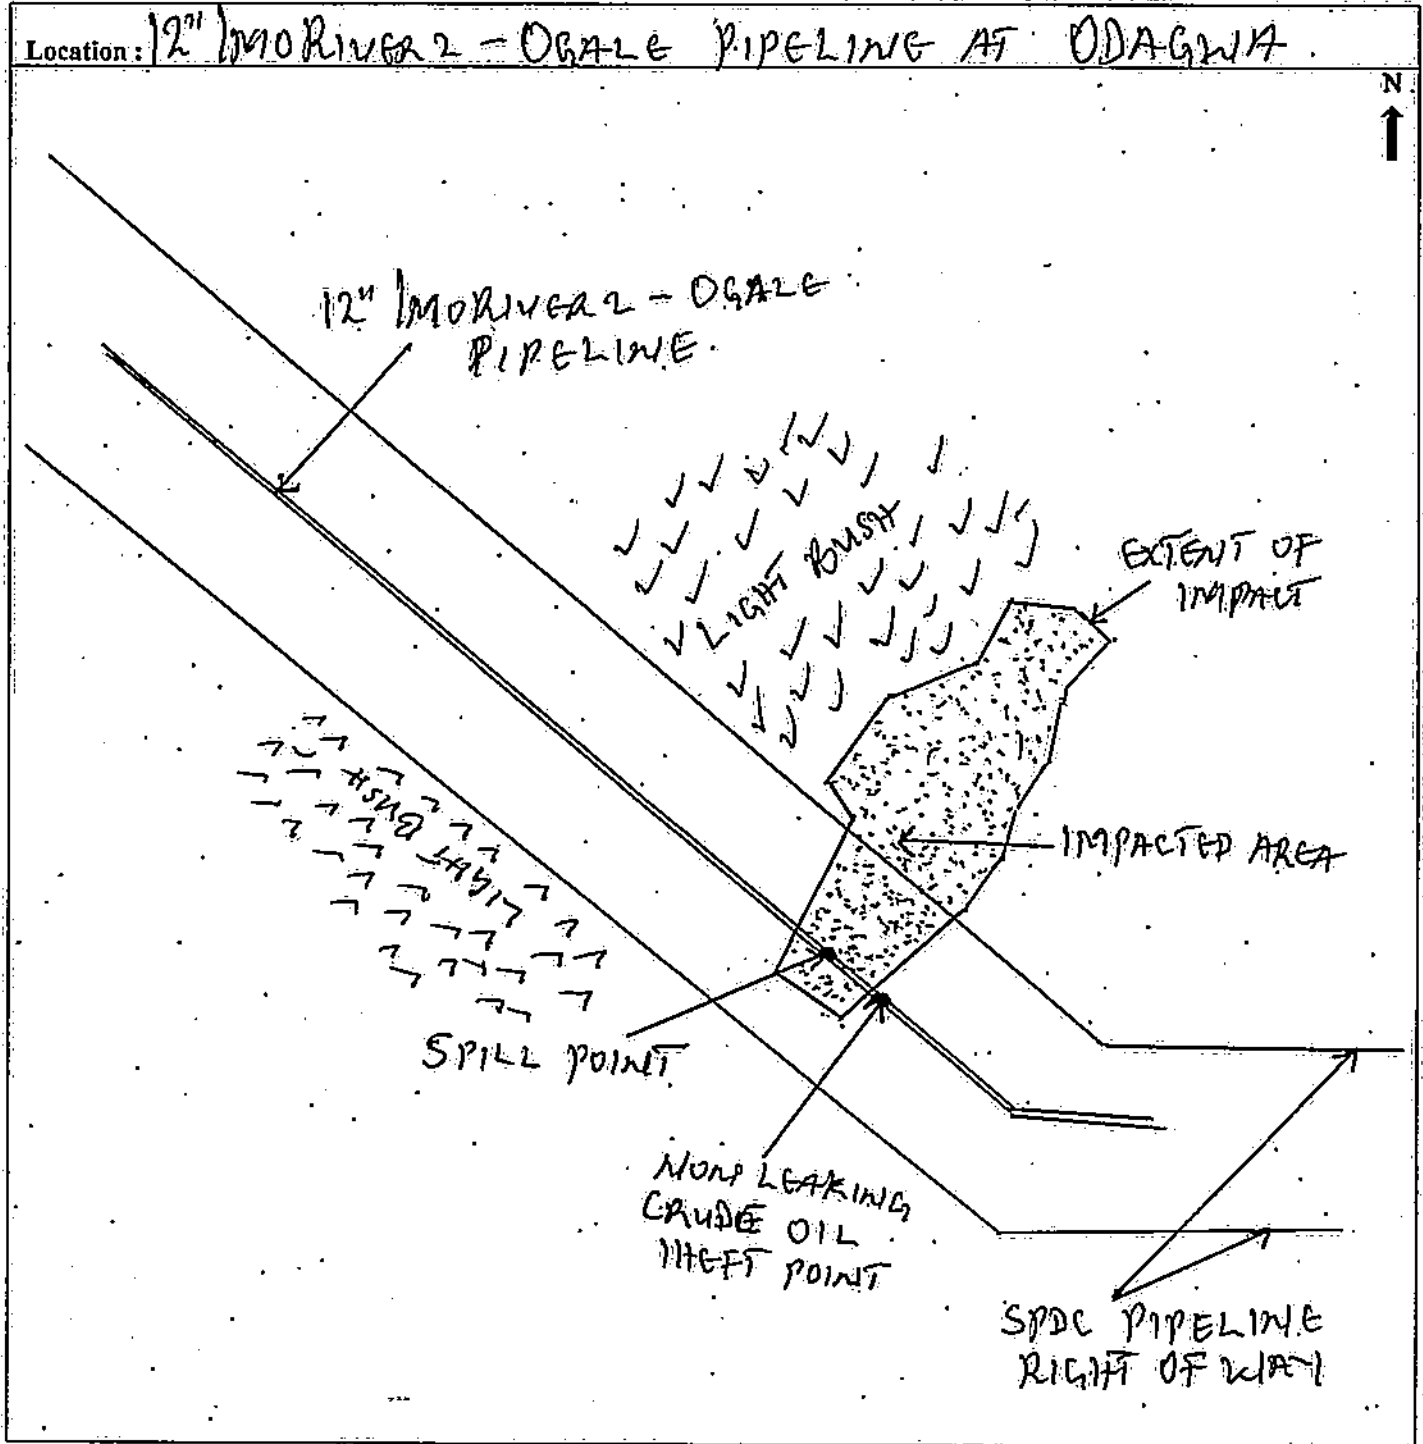 Location: 12" IMORIVER 2 - OGALE PIPELINE AT ODAGWA.
N
12" IMORIVER 2 - OGALE
PIPELINE.
LIGHT BUSH
EXTENT OF
IMPACT
LIGHT BUSH
IMPACTED AREA
SPILL POINT
NON LEAKING
CRUDE OIL
THEFT POINT
SPDC PIPELINE
RIGHT OF WAY